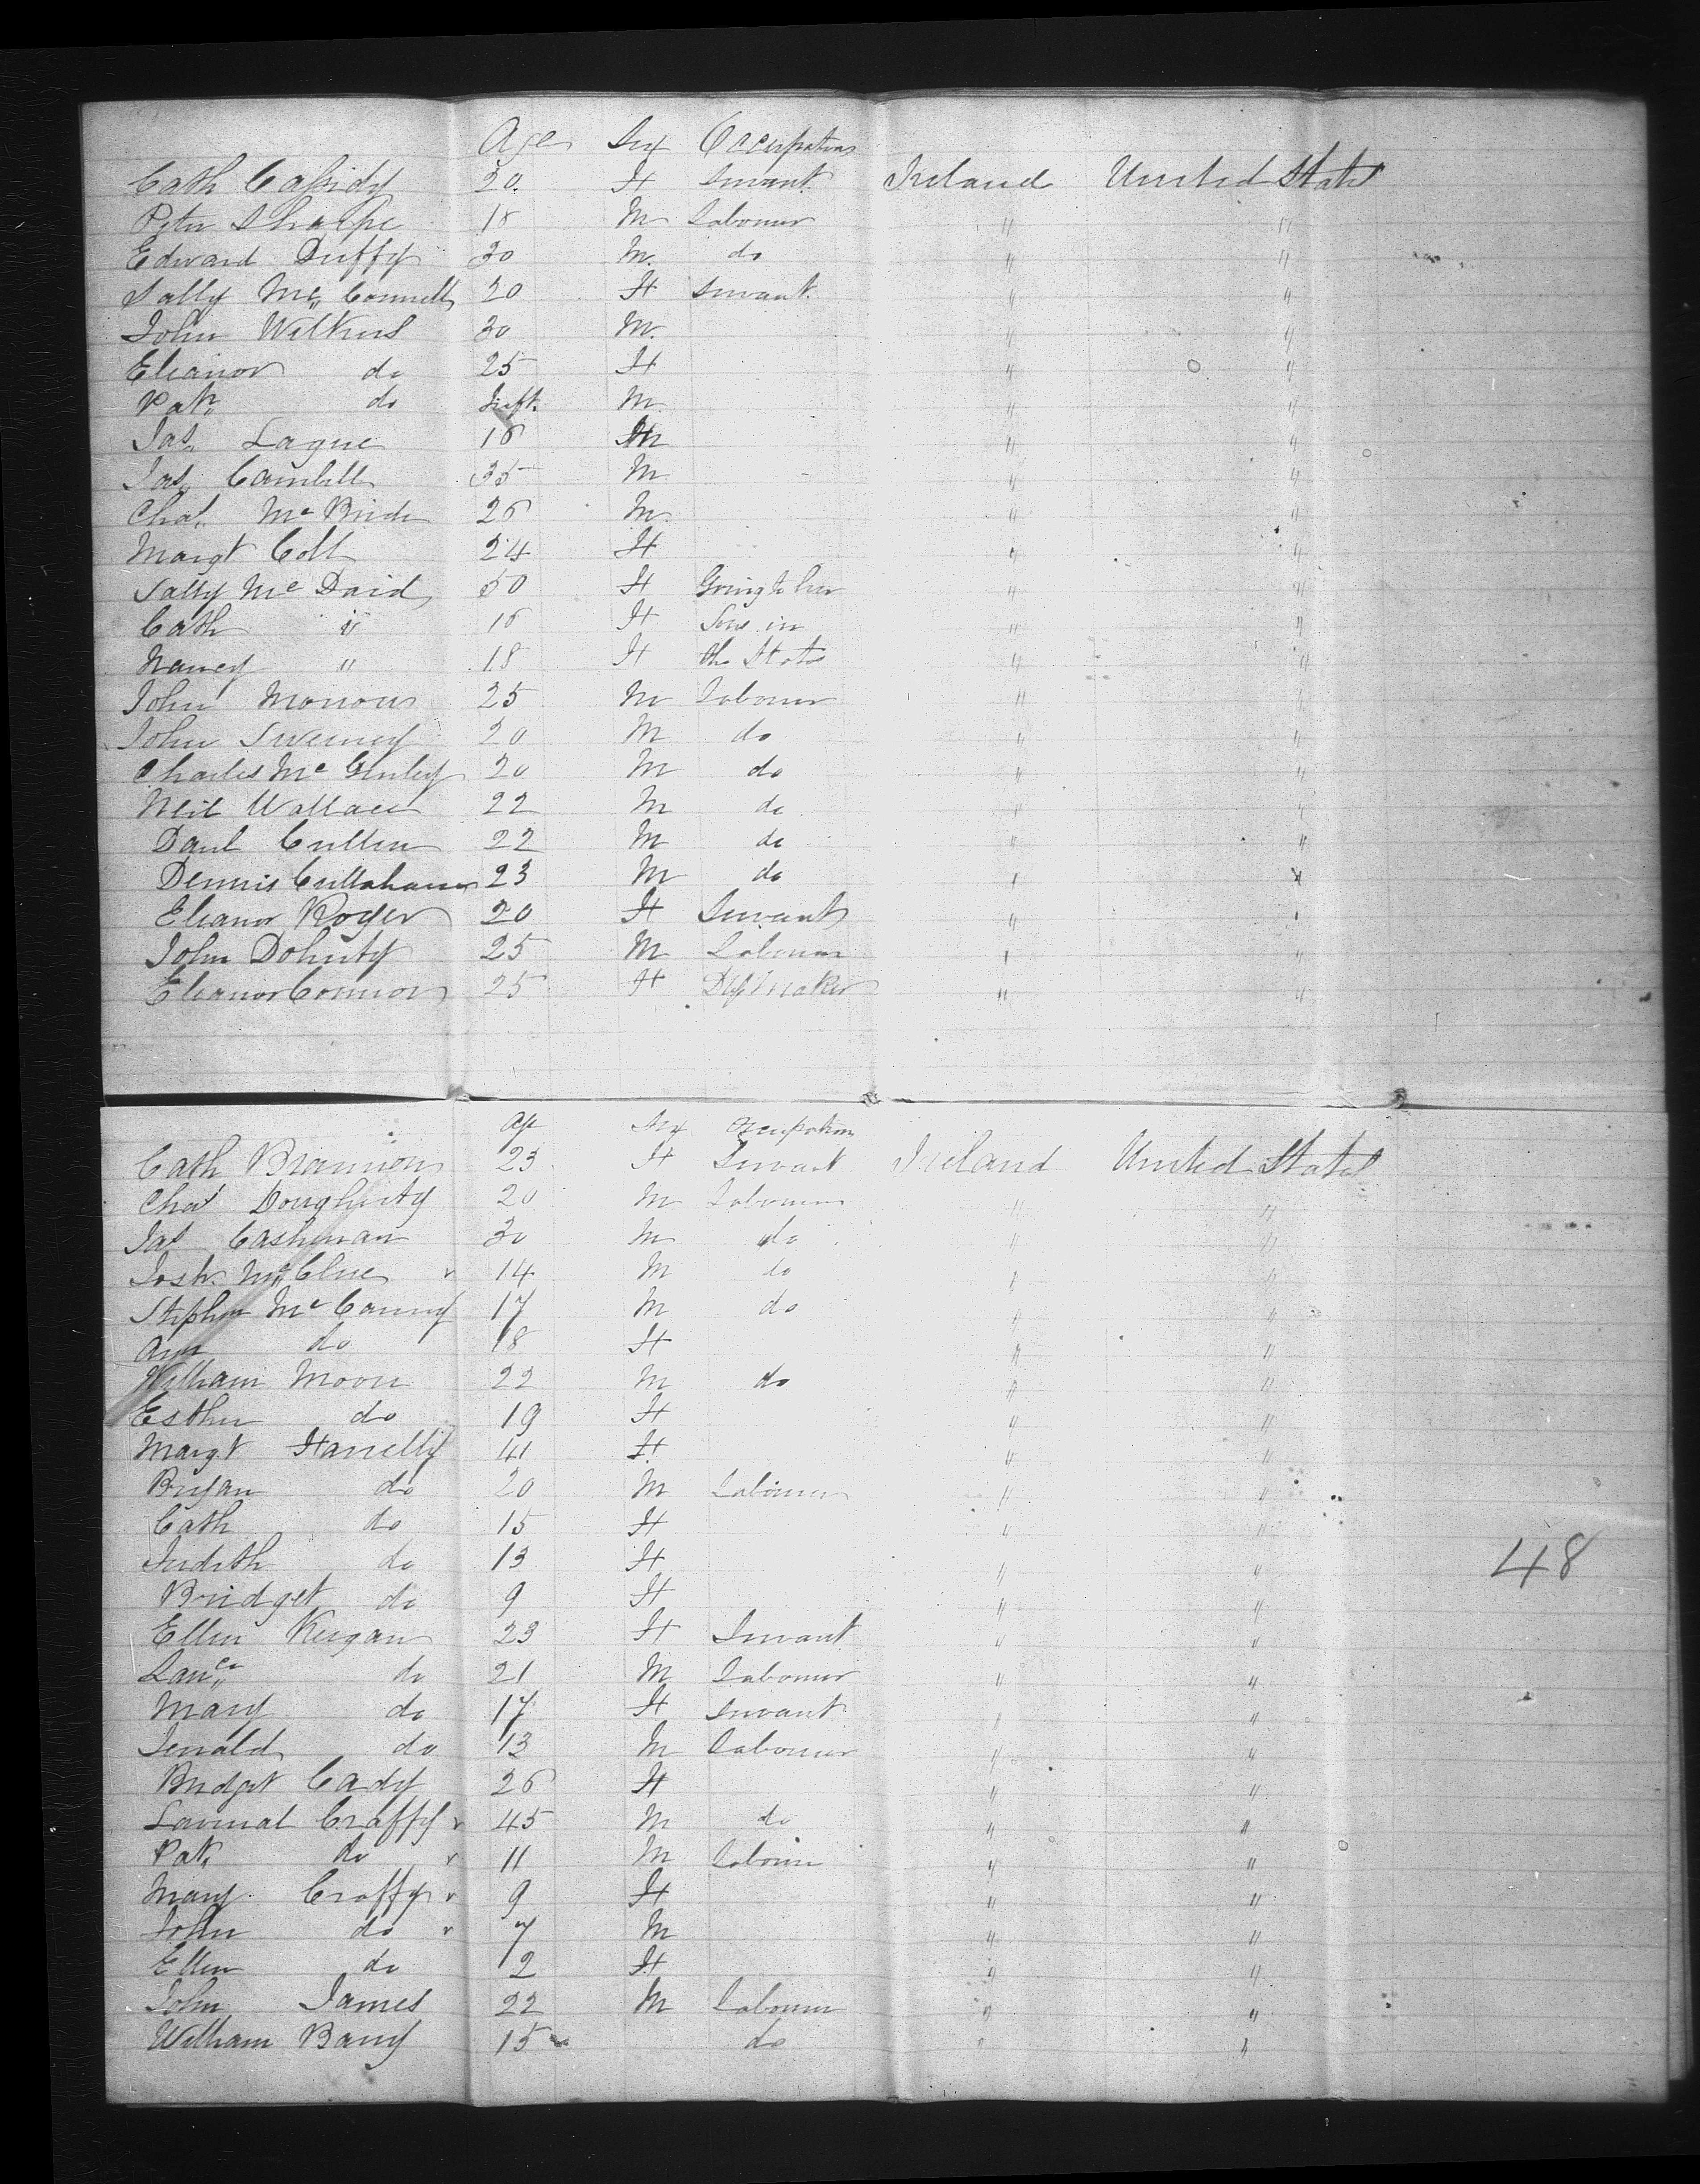 Age Sex Occupation
Cath Cassidy 20. F Servant Ireland United States
Peter Sharpe 18 M Labourer " "
Edward Duffy 30 M. do " "
Sally Mc Connell 20 F Servant. " "
John Wilkins 30 M. " "
Eleanor do 25 F " "
Pat. do Inft. M. " "
Jas. Lague 16 M " "
Jas. Cambell 35 M " "
Chas. Mc Bride 26 M. " "
Margt Coll 24 F " "
Sally Mc Daid 50 F Going to her " "
Cath " 16 F Sons in " "
Nancy " 18 F the States " "
John Monow 25 M Labourer " "
John Sweeney 20 M do " "
Charles Mc Ginley 20 M do " "
Neil Wallace 22 M do " "
Danl Cullen 22 M do " "
Dennis Cullahan 23 M do " "
Eleanor Roger 20 F Servant " "
John Doherty 25 M Labourer " "
Eleanor Connor 25 F Dressmaker " "
Age Sex Occupation
Cath Brannon 23 F Servant Ireland United States
Chas Dougherty 20 M Labourer " "
Jas Cashman 30 M do " "
Josh. Mc Clue 14 M do " "
Stephen Mc Canny 17 M do " "
Ann do 18 F " "
William Moore 22 M do " "
Esther do 19 F " "
Margt Harrelly 41 F. " "
Bryan do 20 M Labourer " "
Cath do 15 F " "
Judith do 13 F " " 48
Bridget do 9 F " "
Ellen Keegan 23 F Servant " "
Lance do 21 M Labourer " "
Mary do 17 F Servant " "
Jerrald do 13 M Labourer " "
Bridget Cady 26 F " "
Craffy 45 M do " "
Pat. do 11 M Labourer " "
Mary Craffy 9 F " "
John do 7 M " "
Ellen do 2 F " "
John James 22 M Labourer " "
William Barry 15 do " "